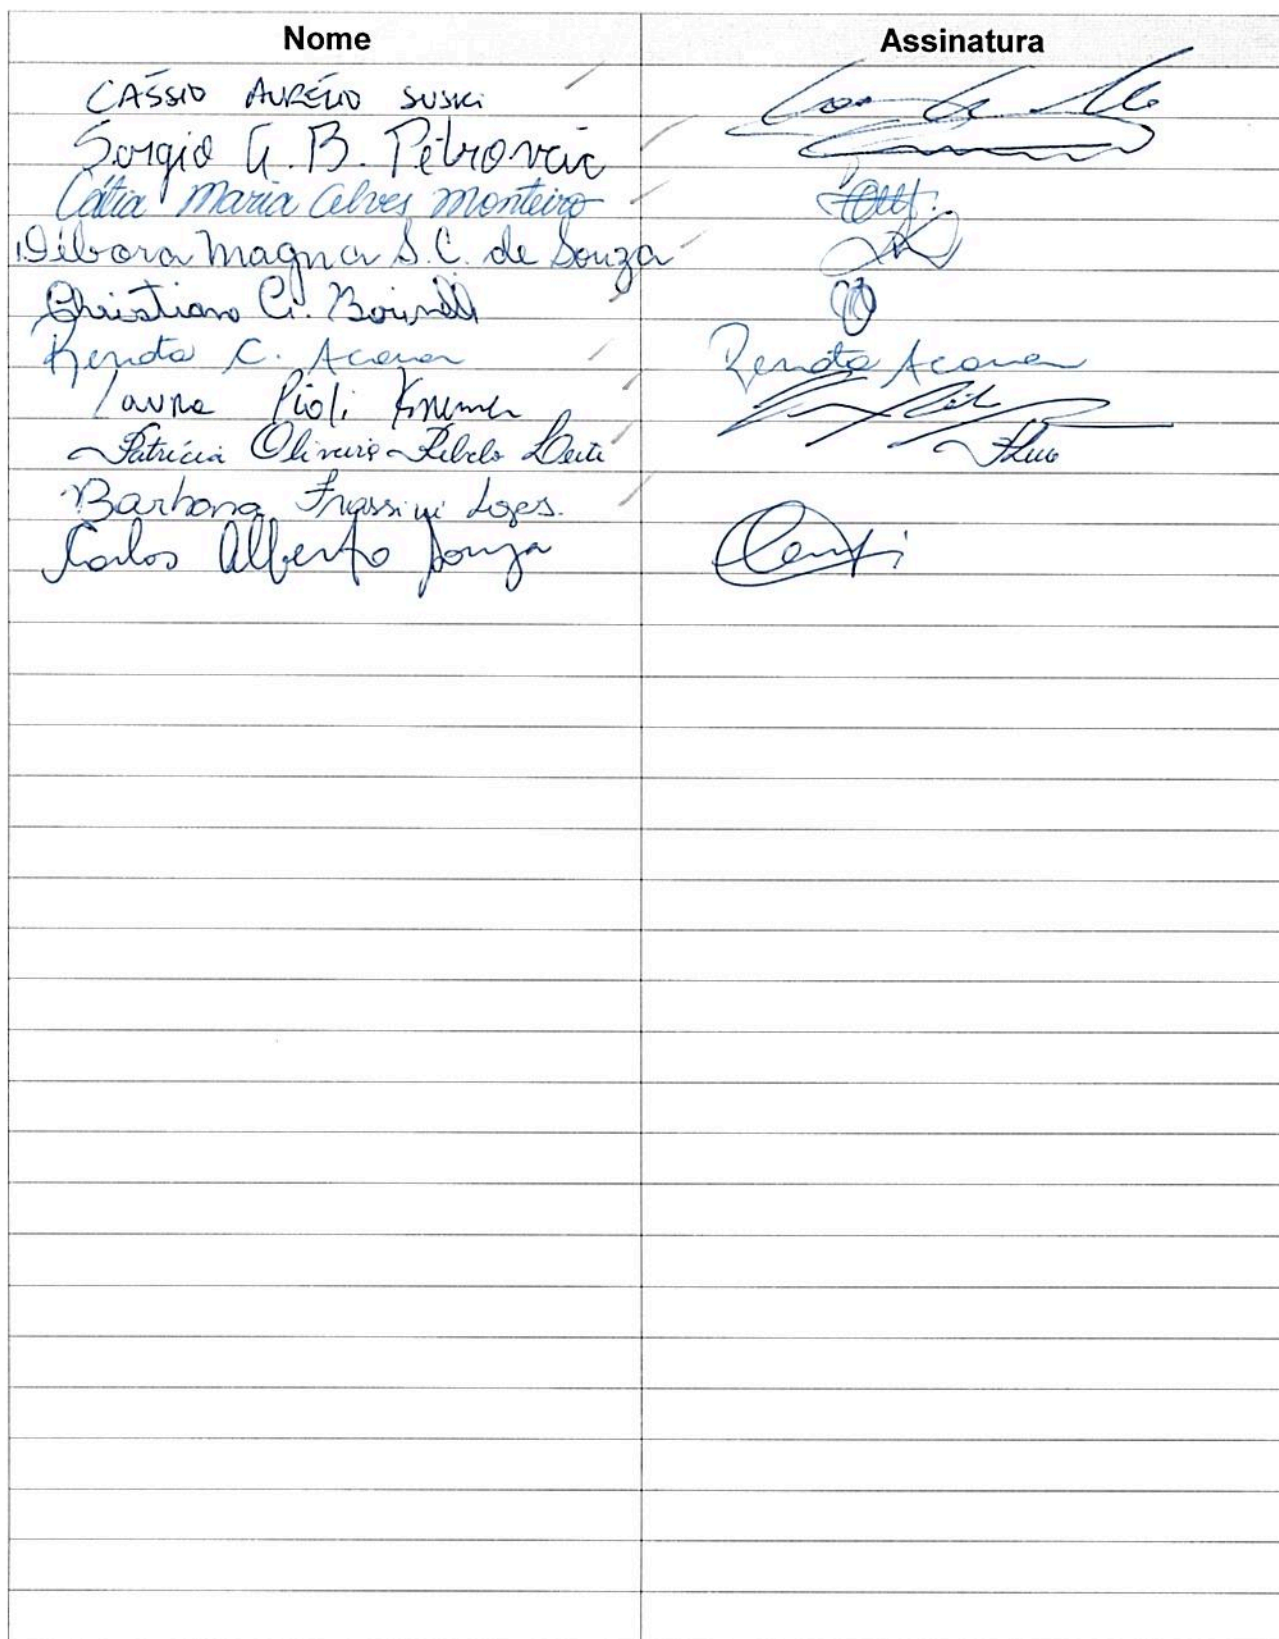 Nome Assinatura
CÁSSIO AURÉLIO SUSKI
Sergio G. B. Petrovcic
Cátia Maria Alves Monteiro
Débora Magna S. C. de Souza
Christiano G.
Renata C. Acauan Renata Acauan
Laura Pioli Kremer
Patrícia Oliveira Rebelo Leite
Barbara Frassini Lopes.
Carlos Alberto Souza